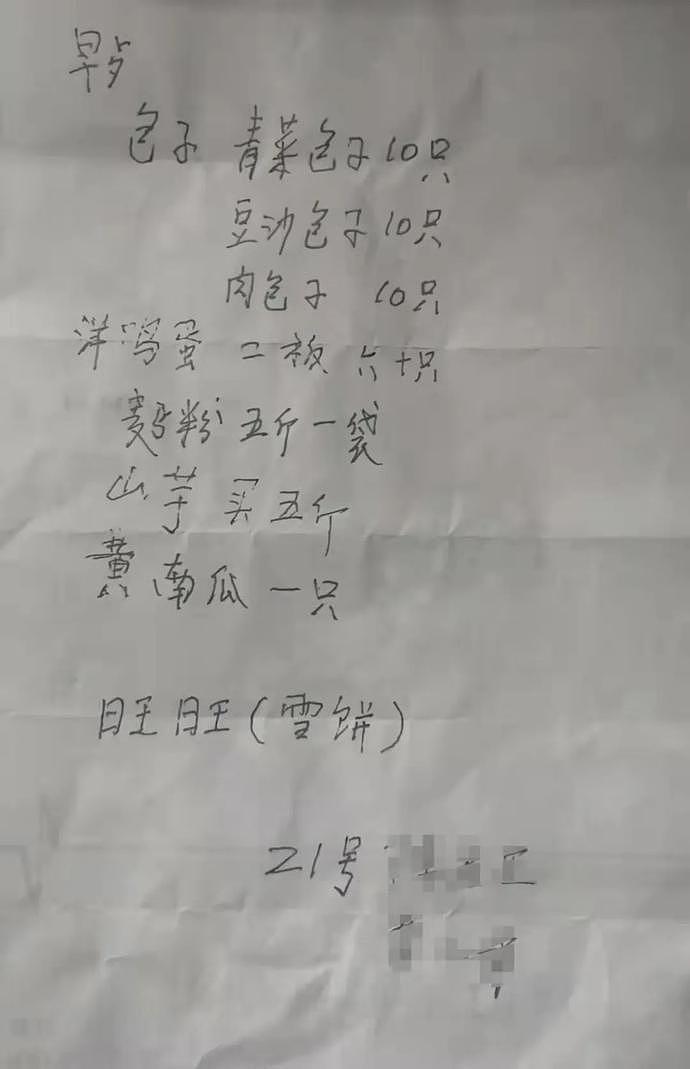 早点
包子 青菜包子10只
豆沙包子10只
肉包子 10只
洋鸡蛋 二板 六十只
麦粉 五斤一袋
山芋 买五斤
黄南瓜一只
旺旺(雪饼)
21号